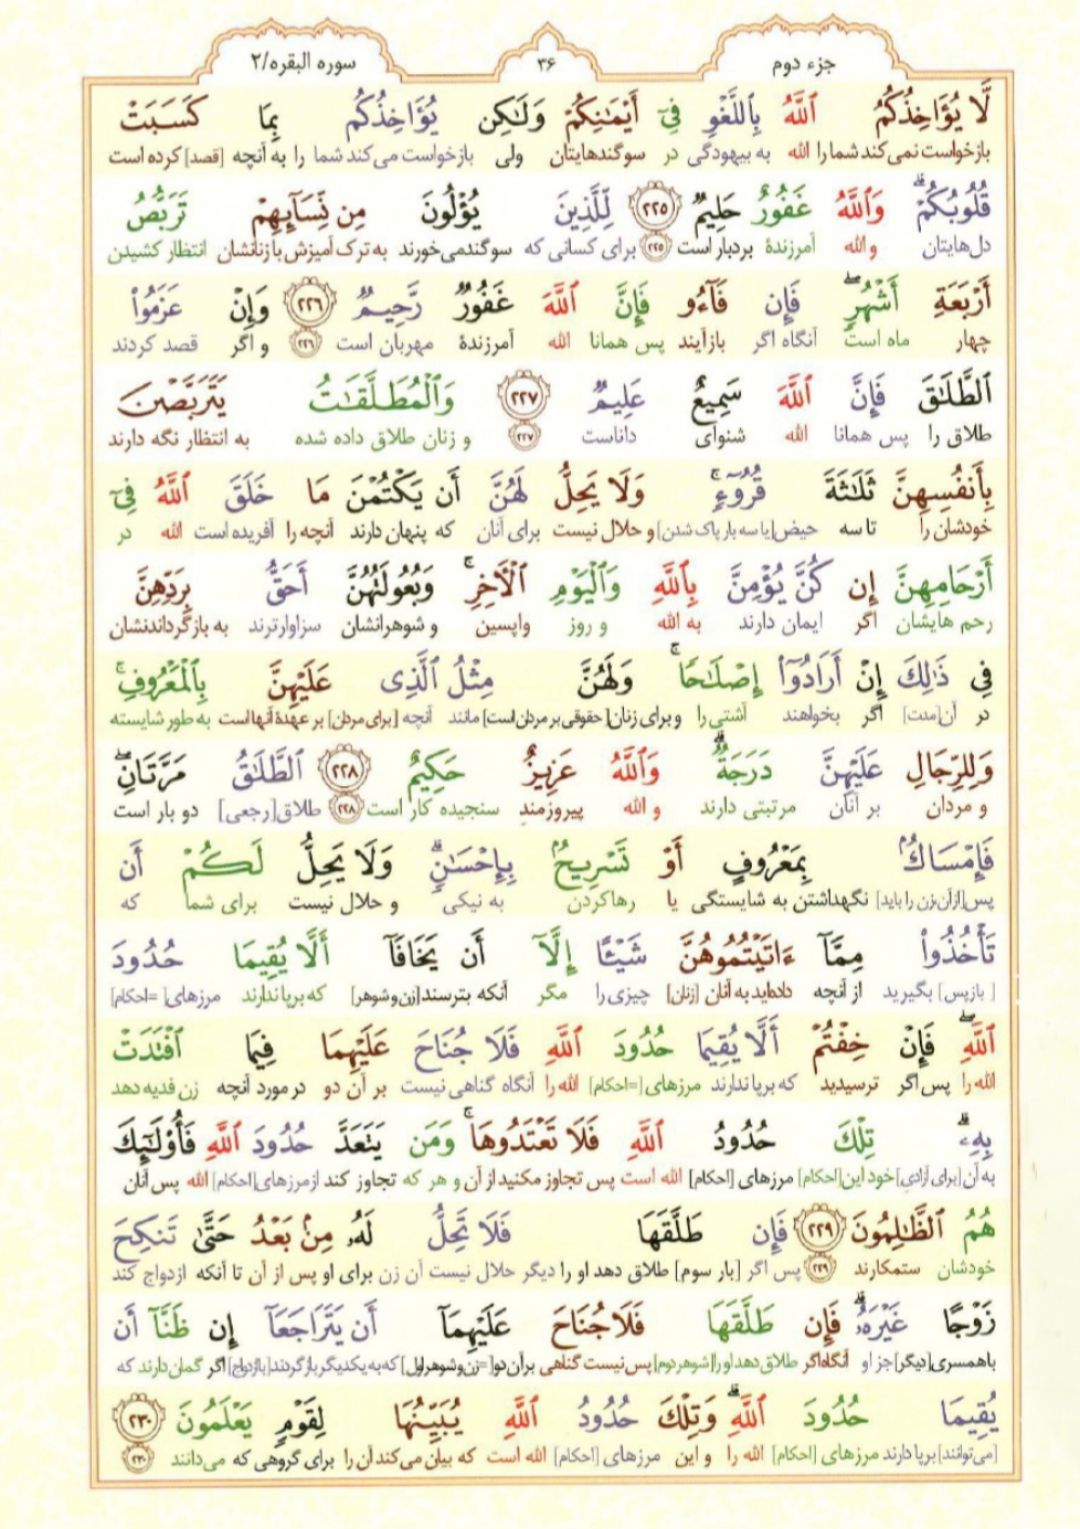 جزء دوم
۳۶
سوره البقره/۲
لَّا يُؤَاخِذُكُمُ ٱللَّهُ بِٱللَّغْوِ فِىٓ أَيْمَـٰنِكُمْ وَلَـٰكِن يُؤَاخِذُكُم بِمَا كَسَبَتْ
بازخواست نمی‌کند شما را الله به بیهودگی در سوگندهایتان ولی بازخواست می‌کند شما را به آنچه [قصد] کرده است
قُلُوبُكُمْ ۗ وَٱللَّهُ غَفُورٌ حَلِيمٌ ٢٢٥ لِّلَّذِينَ يُؤْلُونَ مِن نِّسَآئِهِمْ تَرَبُّصُ
دل‌هایتان و الله آمرزندهٔ بردبار است ۲۲۵ برای کسانی که سوگند می‌خورند به ترک آمیزش با زنانشان انتظار کشیدن
أَرْبَعَةِ أَشْهُرٍ ۖ فَإِن فَآءُو فَإِنَّ ٱللَّهَ غَفُورٌ رَّحِيمٌ ٢٢٦ وَإِنْ عَزَمُوا۟
چهار ماه است آنگاه اگر بازآیند پس همانا الله آمرزندهٔ مهربان است ۲۲۶ و اگر قصد کردند
ٱلطَّلَـٰقَ فَإِنَّ ٱللَّهَ سَمِيعٌ عَلِيمٌ ٢٢٧ وَٱلْمُطَلَّقَـٰتُ يَتَرَبَّصْنَ
طلاق را پس همانا الله شنوای داناست ۲۲۷ و زنان طلاق داده شده به انتظار نگه دارند
بِأَنفُسِهِنَّ ثَلَـٰثَةَ قُرُوٓءٍ ۚ وَلَا يَحِلُّ لَهُنَّ أَن يَكْتُمْنَ مَا خَلَقَ ٱللَّهُ فِىٓ
خودشان را تا سه حیض[یا سه بار پاک شدن] و حلال نیست برای آنان که پنهان دارند آنچه را آفریده است الله در
أَرْحَامِهِنَّ إِن كُنَّ يُؤْمِنَّ بِٱللَّهِ وَٱلْيَوْمِ ٱلْـَٔاخِرِ ۚ وَبُعُولَتُهُنَّ أَحَقُّ بِرَدِّهِنَّ
رحم هایشان اگر ایمان دارند به الله و روز واپسین و شوهرانشان سزاوارترند به بازگرداندنشان
فِى ذَٰلِكَ إِنْ أَرَادُوٓا۟ إِصْلَـٰحًا ۚ وَلَهُنَّ مِثْلُ ٱلَّذِى عَلَيْهِنَّ بِٱلْمَعْرُوفِ ۚ
در آن[مدت] اگر بخواهند آشتی را و برای زنان[حقوقی بر مردان است] مانند آنچه [برای مردان] بر عهدهٔ آنها است به طور شایسته
وَلِلرِّجَالِ عَلَيْهِنَّ دَرَجَةٌ ۗ وَٱللَّهُ عَزِيزٌ حَكِيمٌ ٢٢٨ ٱلطَّلَـٰقُ مَرَّتَانِ ۖ
و مردان بر آنان مرتبتی دارند و الله پیروزمند سنجیده کار است ۲۲۸ طلاق[رجعی] دو بار است
فَإِمْسَاكٌۢ بِمَعْرُوفٍ أَوْ تَسْرِيحٌۢ بِإِحْسَـٰنٍ ۗ وَلَا يَحِلُّ لَكُمْ أَن
پس[از آن زن را باید] نگهداشتن به شایستگی یا رها کردن به نیکی و حلال نیست برای شما که
تَأْخُذُوا۟ مِمَّآ ءَاتَيْتُمُوهُنَّ شَيْـًٔا إِلَّآ أَن يَخَافَآ أَلَّا يُقِيمَا حُدُودَ
[بازپس] بگیرید از آنچه داده‌اید به آنان [زنان] چیزی را مگر آنکه بترسند[زن و شوهر] که برپا ندارند مرزهای[=احکام]
ٱللَّهِ ۖ فَإِنْ خِفْتُمْ أَلَّا يُقِيمَا حُدُودَ ٱللَّهِ فَلَا جُنَاحَ عَلَيْهِمَا فِيمَا ٱفْتَدَتْ
الله را پس اگر ترسیدید که برپا ندارند مرزهای[=احکام] الله را آنگاه گناهی نیست بر آن دو در مورد آنچه زن فدیه دهد
بِهِۦ ۗ تِلْكَ حُدُودُ ٱللَّهِ فَلَا تَعْتَدُوهَا ۚ وَمَن يَتَعَدَّ حُدُودَ ٱللَّهِ فَأُو۟لَـٰٓئِكَ
به آن[برای آزادی] خود این[احکام] مرزهای [احکام] الله است پس تجاوز مکنید از آن و هر که تجاوز کند از مرزهای[احکام] الله پس آنان
هُمُ ٱلظَّـٰلِمُونَ ٢٢٩ فَإِن طَلَّقَهَا فَلَا تَحِلُّ لَهُۥ مِنۢ بَعْدُ حَتَّىٰ تَنكِحَ
خودشان ستمکارند ۲۲۹ پس اگر [بار سوم] طلاق دهد او را دیگر حلال نیست آن زن برای او پس از آن تا آنکه ازدواج کند
زَوْجًا غَيْرَهُۥ ۗ فَإِن طَلَّقَهَا فَلَا جُنَاحَ عَلَيْهِمَآ أَن يَتَرَاجَعَآ إِن ظَنَّآ أَن
با همسری[دیگر] جز او آنگاه اگر طلاق دهد او را[شوهر دوم] پس نیست گناهی بر آن دو[=زن و شوهر اول] که به یکدیگر بازگردند[با ازدواج] اگر گمان دارند که
يُقِيمَا حُدُودَ ٱللَّهِ ۗ وَتِلْكَ حُدُودُ ٱللَّهِ يُبَيِّنُهَا لِقَوْمٍ يَعْلَمُونَ ٢٣٠
[می‌توانند] برپا دارند مرزهای [احکام] الله را و این مرزهای [احکام] الله است که بیان می‌کند آن را برای گروهی که می‌دانند ۲۳۰